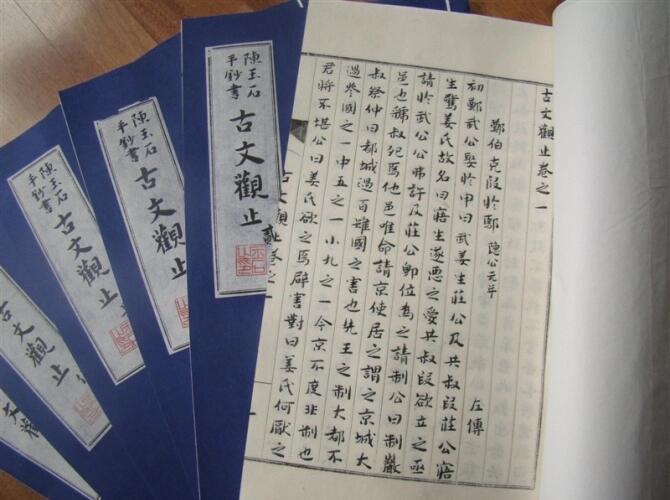 古文觀止卷之一
鄭伯克段於鄢 隱公元年 左傳
初鄭武公娶於申曰武姜生莊公及共叔段莊公寤
生驚姜氏故名曰寤生遂惡之愛共叔段欲立之亟
請於武公公弗許及莊公即位為之請制公曰制巖
邑也虢叔死焉他邑唯命請京使居之謂之京城大
叔祭仲曰都城過百雉國之害也先王之制大都不
過參國之一中五之一小九之一今京不度非制也
君將不堪公曰姜氏欲之焉辟害對曰姜氏何厭之
古文觀止卷之一
陳玉石
手鈔書
古文觀止
陳玉石
手鈔書
古文觀止
陳玉石
手鈔書
古文觀止
古文觀止
文觀